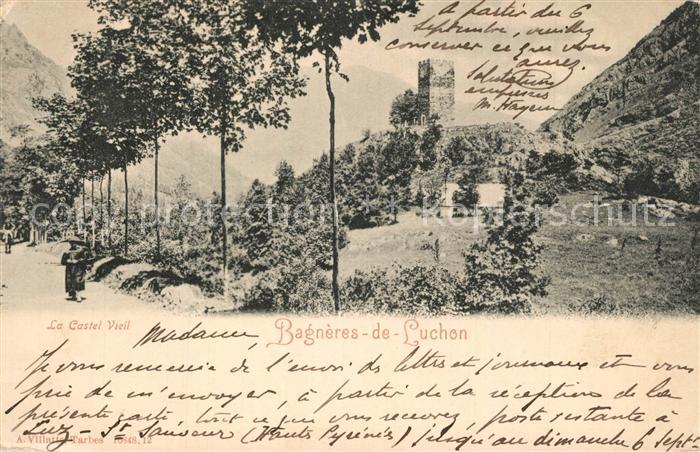 A partir du 6
Septembre, veuillez
conserver ce que vous
aurez.
Salutations
empressées
Copyright oldthing.com
La Castel Vieil
Bagnères-de-Luchon
Madame,
Je vous remercie de l'envoi des lettres et journaux et vous
prie de m'envoyer, à partir de la réception de la
présente carte tout ce que vous recevrez, poste restante à
A. Villatte Tarbes 10848.12
Luz-St Sauveur (Hautes Pyrénées) jusqu'au dimanche 6 septbre